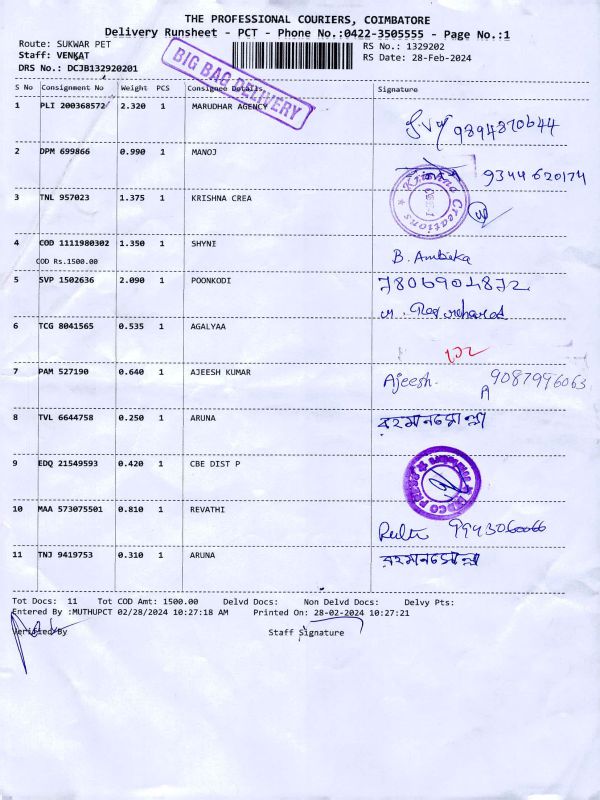 THE PROFESSIONAL COURIERS, COIMBATORE
Delivery Runsheet - PCT - Phone No.:0422-3505555 - Page No.:1
Route: SUKWAR PET RS No.: 1329202
Staff: VENKAT RS Date: 28-Feb-2024
DRS No.: DCJB132920201
BIG BAG DELIVERY
S No Consignment No Weight PCS Consignee Details Signature
1 PLI 200368572 2.320 1 MARUDHAR AGENCY 9894870644
2 DPM 699866 0.990 1 MANOJ 9344620174
3 TNL 957023 1.375 1 KRISHNA CREA Creations
4 COD 1111980302 1.350 1 SHYNI B. Ambika
COD Rs.1500.00
5 SVP 1502636 2.090 1 POONKODI 7806904872
6 TCG 8041565 0.535 1 AGALYAA
7 PAM 527190 0.640 1 AJEESH KUMAR Ajeesh. 9087996063
A
8 TVL 6644758 0.250 1 ARUNA
9 EDQ 21549593 0.420 1 CBE DIST P
10 MAA 573075501 0.810 1 REVATHI 9943060066
11 TNJ 9419753 0.310 1 ARUNA
Tot Docs: 11 Tot COD Amt: 1500.00 Delvd Docs: Non Delvd Docs: Delvy Pts:
Entered By :MUTHUPCT 02/28/2024 10:27:18 AM Printed On: 28-02-2024 10:27:21
Verified By Staff Signature